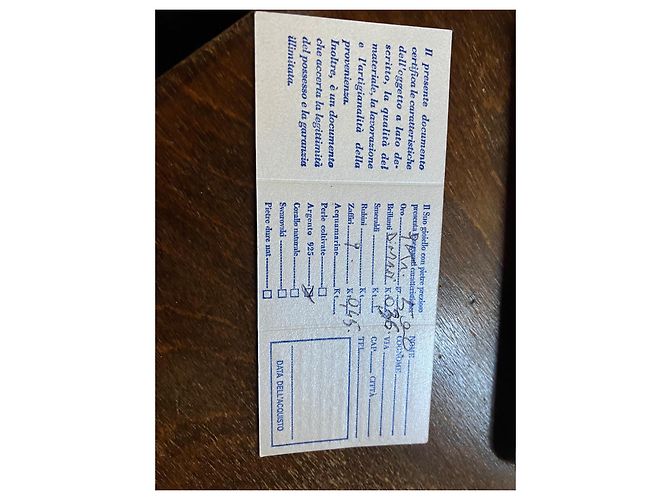 Il presente documento
certifica le caratteristiche
dell'oggetto a lato de-
scritto, la qualità del
materiale, la lavorazione
e l'artigianalità della
provenienza.
Inoltre, è un documento
che accerta la legittimità
del possesso e la garanzia
illimitata.
Il Suo gioiello con pietre preziose
presenta caratteristiche
Oro gr.
Brillanti K 036
Smeraldi Kt.
Rubini Kt.
Zaffiri Kt. 045
Acquamarine Kt.
Perle coltivate
Argento 925
Corallo naturale
Swarovski
Pietre dure nat.
NOME
COGNOME
VIA
CAP. CITTÀ
TEL.
DATA DELL'ACQUISTO